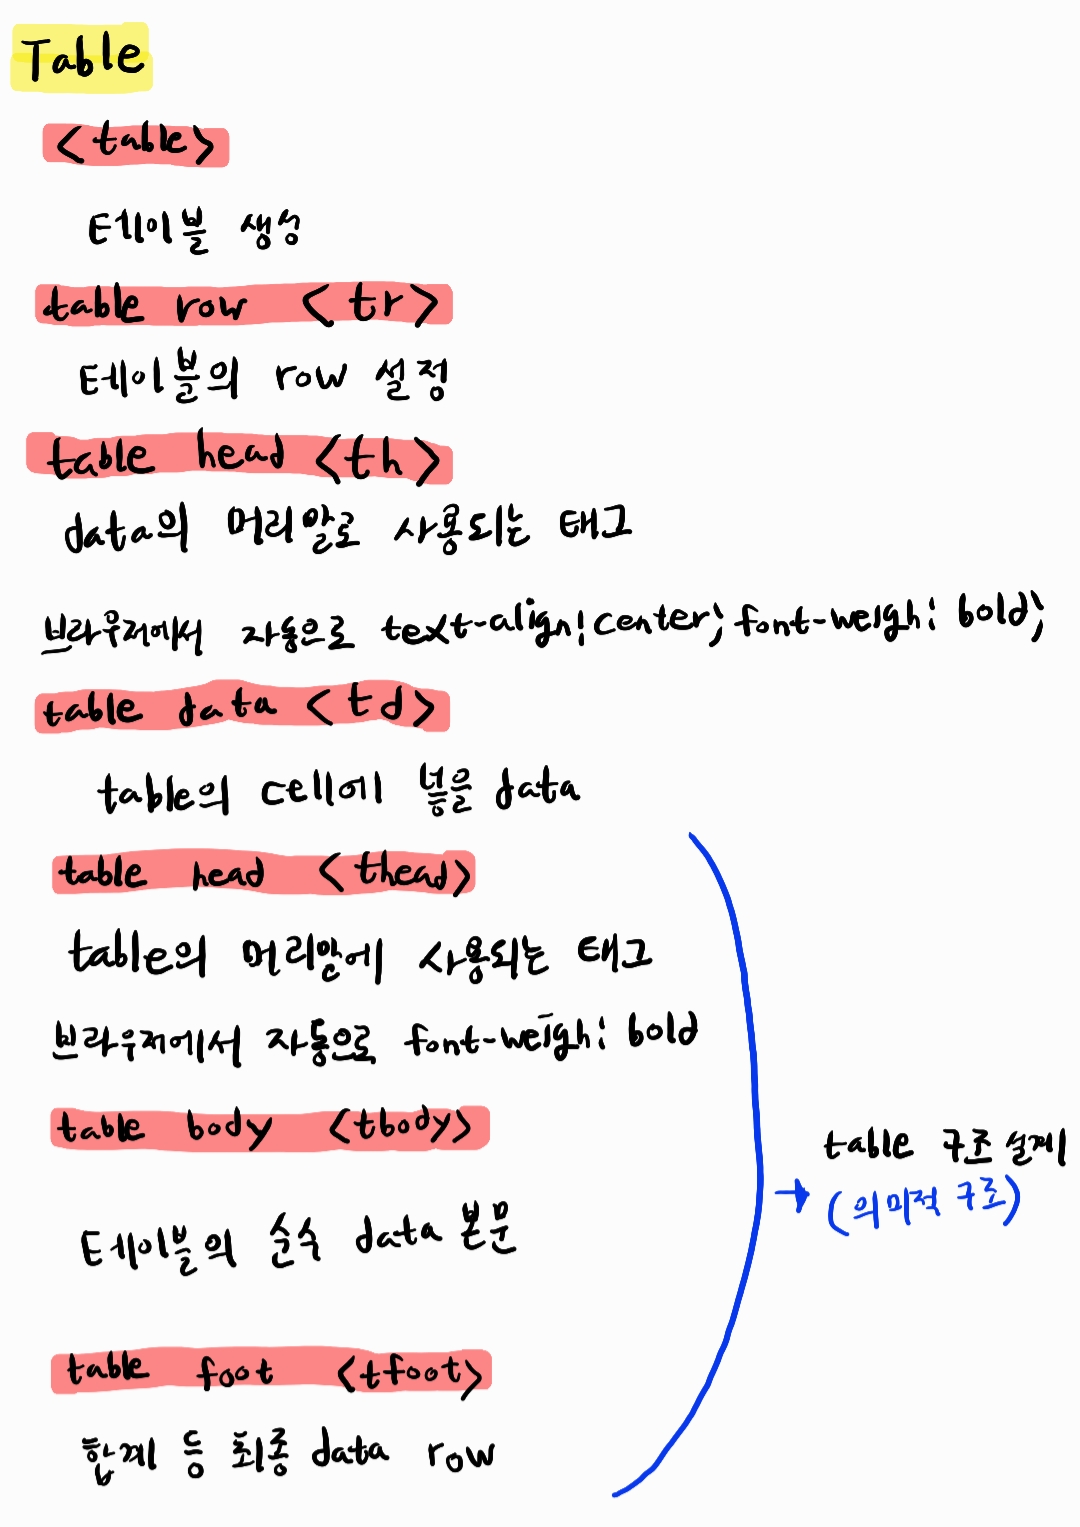 Table
<table>
테이블 생성
table row <tr>
테이블의 row 설정
table head <th>
data의 머리말로 사용되는 태그
브라우저에서 자동으로 text-align:center; font-weigh: bold;
table data <td>
table의 cell에 넣을 data
table head <thead>
table의 머리말에 사용되는 태그
브라우저에서 자동으로 font-weigh: bold
table body <tbody>
테이블의 순수 data 본문
table foot <tfoot>
합계 등 최종 data row
→ table 구조 설계
(의미적 구조)